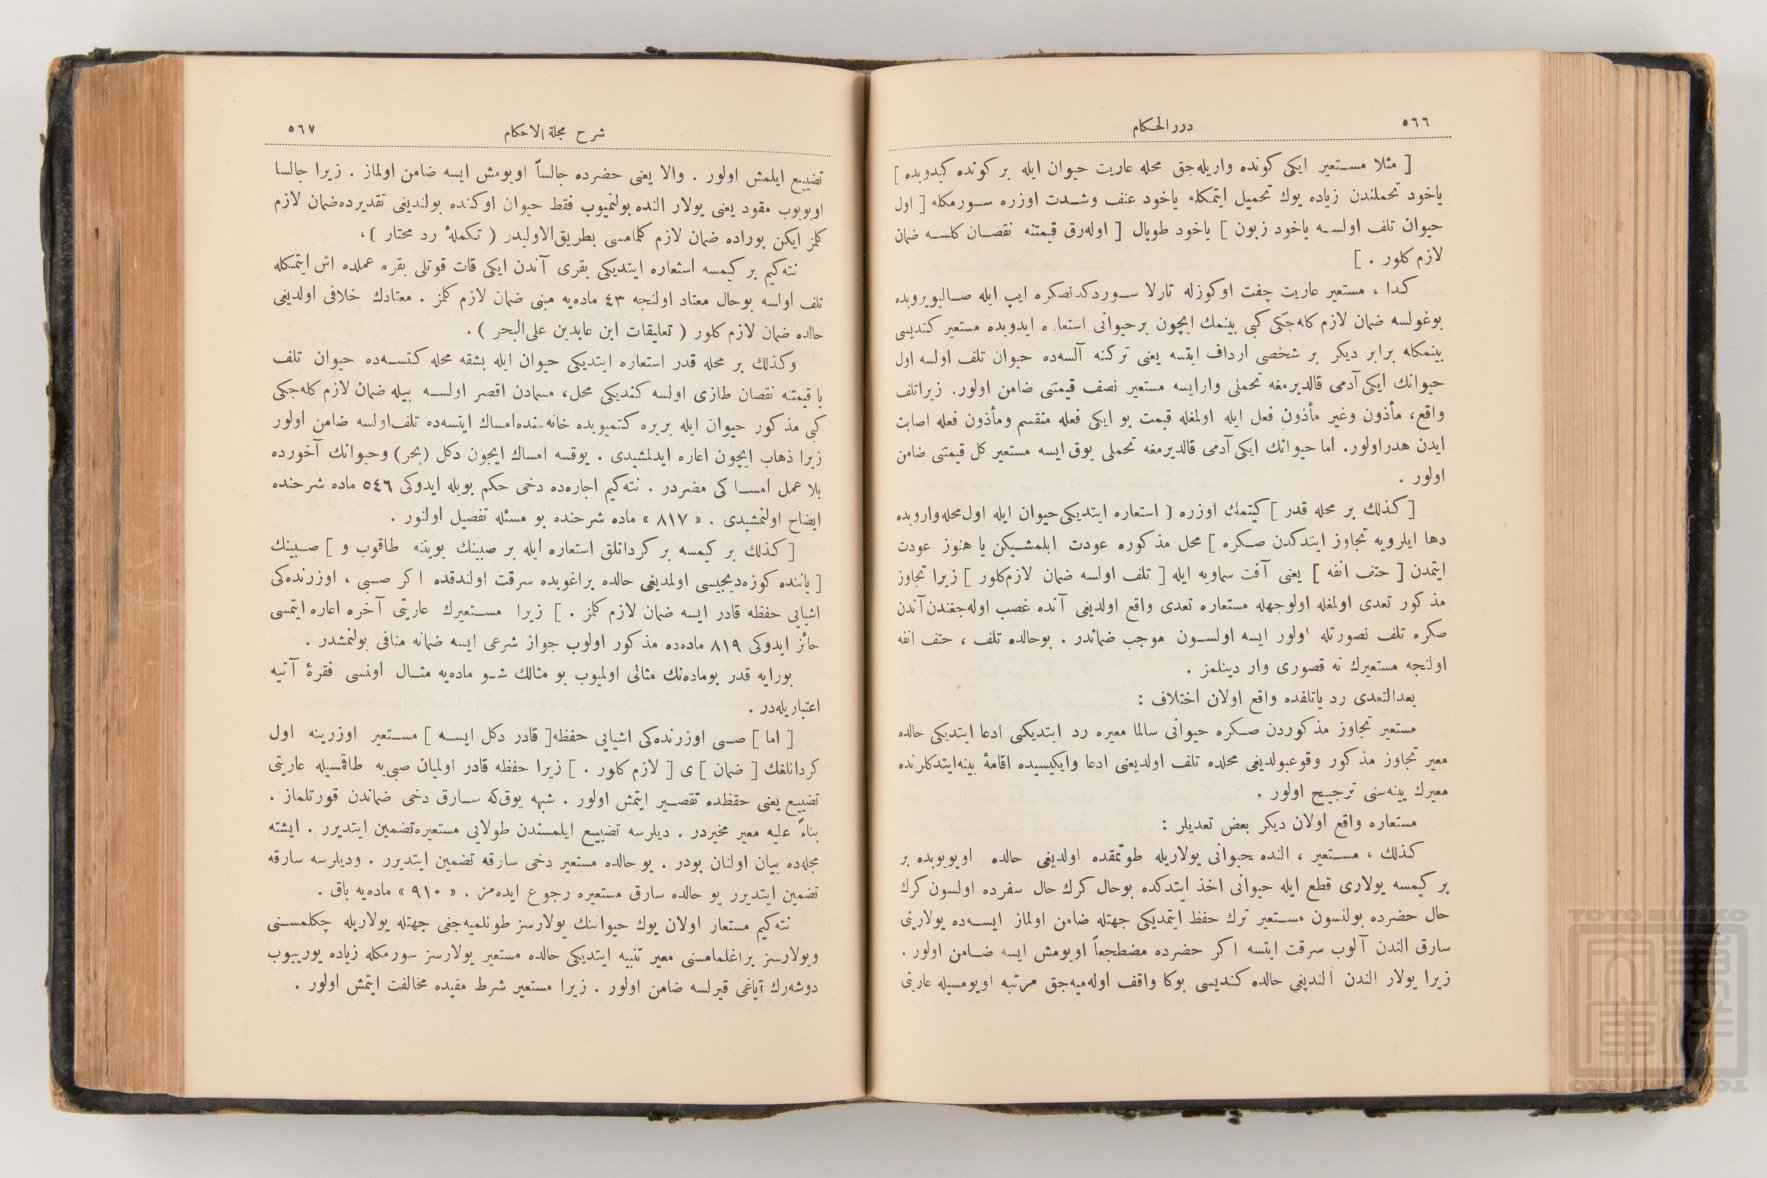 ٥٦٦
درر الحكام
[ مثلا مستعير ايكى كونده واريله‌جق محله عاريت حيوان ايله بر كونده كيدوبده ]
ياخود تحملندن زياده يوك تحميل ايتمكله ياخود عنف وشدت اوزره سورمكله [ اول
حيوان تلف اولسه ياخود زبون ] ياخود طوپال [ اوله‌رق قيمتنه نقصان كلسه ضمان
لازم كلور . ]
كذا ، مستعير عاريت چفت اوكوزله تارلا سوردكدنصكره ايپ ايله صاليويروبده
بوغولسه ضمان لازم كله‌جكى كبى بينمك ايچون برحيوانى استعاره ايدوبده مستعير كنديسى
بينمكله برابر ديكر بر شخصى ارداف ايتسه يعنى تركنه آلسه‌ده حيوان تلف اولسه اول
حيوانك ايكى آدمى قالديرمغه تحملى وارايسه مستعير نصف قيمتنى ضامن اولور. زيراتلف
واقع، مأذون وغير مأذون فعل ايله اولمغله قيمت بو ايكى فعله منقسم ومأذون فعله اصابت
ايدن هدراولور. اما حيوانك ايكى آدمى قالديرمغه تحملى يوق ايسه مستعير كل قيمتنى ضامن
اولور .
[ كذلك بر محله قدر ] كيتمك اوزره [ استعاره ايتديكى حيوان ايله اول محله‌واروبده
دها ايلرويه تجاوز ايتدكدن صكره ] محل مذكوره عودت ايلمشيكن يا هنوز عودت
ايتمدن [ حتف انفه ] يعنى آفت سماويه ايله [ تلف اولسه ضمان لازم‌كلور ] زيرا تجاوز
مذكور تعدى اولمغله اولوجهله مستعاره تعدى واقع اولديغى آنده غصب اوله‌جغندن آندن
صكره تلف نصورتله اولور ايسه اولسون موجب ضماندر . بوحالده تلف ، حتف انفه
اولنجه مستعيرك نه قصورى وار دينلمز .
بعدالتعدى رد ياتلفده واقع اولان اختلاف :
مستعير تجاوز مذكوردن صكره حيوانى سالما معيره رد ايتديكنى ادعا ايتديكى حالده
معير تجاوز مذكور وقوعبولديغى محلده تلف اولديغنى ادعا وايكيسيده اقامهٔ بينه‌ايتدكلرنده
معيرك بينه‌سنى ترجيح اولور .
مستعاره واقع اولان ديكر بعض تعديلر :
كذلك ، مستعير ، النده حيوانى يولاريله طوتمقده اولديغى حالده اويويوبده بر
بر كيمسه يولارى قطع ايله حيوانى اخذ ايتدكده بوحال كرك حال سفرده اولسون كرك
حال حضرده بولنسون مستعير ترك حفظ ايتمديكى جهتله ضامن اولماز ايسه‌ده يولارينى
سارق الندن آلوب سرقت ايتسه اكر حضرده مضطجعاً اويومش ايسه ضامن اولور .
زيرا يولار الندن آلنديغى حالده كنديسى بوكا واقف اوله‌ميه‌جق مرتبه اويومسيله عاريتى
شرح مجلة الاحكام
٥٦٧
تضييع ايلمش اولور . والا يعنى حضرده جالساً اويومش ايسه ضامن اولماز . زيرا جالسا
اويويوب مقود يعنى يولار النده بولنميوب فقط حيوان اوكنده بولنديغى تقديرده‌ضمان لازم
كلمز ايكن بوراده ضمان لازم كلمامسى بطريق‌الاولىدر ( تكملهٔ رد محتار ) .
نته‌كيم بر كيمسه استعاره ايتديكى بقرى آندن ايكى قات قوتلى بقره عملده اش ايتمكله
تلف اولسه بوحال معتاد اولنجه ٤٣ ماده‌يه مبنى ضمان لازم كلمز . معتادك خلافى اولديغى
حالده ضمان لازم كلور ( تعليقات ابن عابدين على‌البحر ) .
وكذلك بر محله قدر استعاره ايتديكى حيوان ايله بشقه محله كتسه‌ده حيوان تلف
يا قيمتنه نقصان طارى اولسه كنديكى محل، مسمادن اقصر اولسه بيله ضمان لازم كله‌جكى
كبى مذكور حيوان ايله بريره كتميوبده خانه‌سنده‌امساك ايتسه‌ده تلف‌اولسه ضامن اولور
زيرا ذهاب ايچون اعاره ايدلمشيدى . يوقسه امساك ايچون دكل (بحر) وحيوانك آخورده
بلا عمل امساكى مضردر . نته‌كيم اجاره‌ده دخى حكم بويله ايدوكى ٥٤٦ ماده شرحنده
ايضاح اولنمشيدى . « ٨١٧ » ماده شرحنده بو مسئله تفصيل اولنور .
[ كذلك بر كيمسه بر كردانلق استعاره ايله بر صبينك بوينه طاقوب و ] صبينك
[ ياننده كوزه‌ديجيسى اولمديغى حالده براغوبده سرقت اولندقده اكر صبى ، اوزرنده‌كى
اشيايى حفظه قادر ايسه ضمان لازم كلمز . ] زيرا مستعيرك عاريتى آخره اعاره ايتمسى
جائز ايدوكى ٨١٩ ماده‌ده مذكور اولوب جواز شرعى ايسه ضمانه منافى بولنمشدر .
بورايه قدر بوماده‌نك مثالى اولميوب بو مثالك شو ماده‌يه مثال اولنسى فقرهٔ آتيه
اعتباريله‌در .
[ اما ] صبى اوزرنده‌كى اشيايى حفظه [ قادر دكل ايسه ] مستعير اوزرينه اول
كردانلغك [ ضمان ] ى [ لازم كلور . ] زيرا حفظه قادر اولميان صبى‌يه طاقمسيله عاريتى
تضييع يعنى حفظده تقصير ايتمش اولور . شبهه يوق‌كه سارق دخى ضماندن قورتلماز .
بناءً عليه معير مخيردر . ديلرسه تضييع ايلمسندن طولايى مستعيره‌تضمين ايتديرر . ايشته
مجله‌ده بيان اولنان بودر . بو حالده مستعير دخى سارقه تضمين ايتديرر . وديلرسه سارقه
تضمين ايتديرر بو حالده سارق مستعيره رجوع ايده‌مز . « ٩١٠ » ماده‌يه باق .
نته‌كيم مستعار اولان يوك حيواننك يولارسز طوتلميه‌جغى جهتله يولاريله چكلمسنى
ويولارسز براغلمامسنى معير تنبيه ايتديكى حالده مستعير يولارسز سورمكله زياده يورييوب
دوشه‌رك آياغى قيرلسه ضامن اولور . زيرا مستعير شرط مفيده مخالفت ايتمش اولور .
TOYO BUNKO